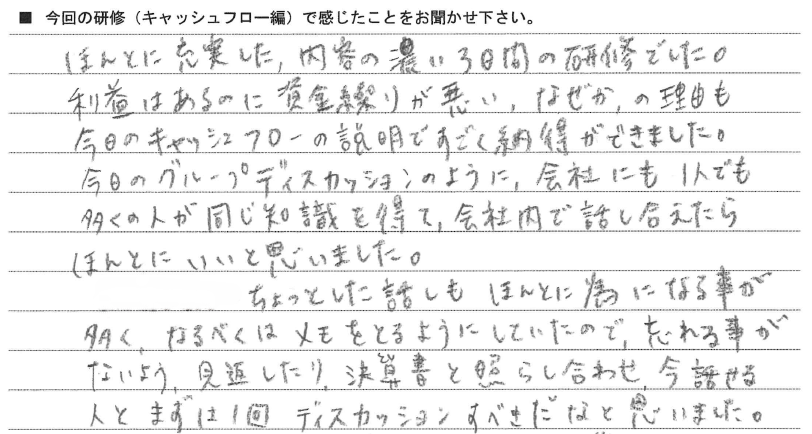 ■ 今回の研修（キャッシュフロー編）で感じたことをお聞かせ下さい。
ほんとに充実した，内容の濃い3日間の研修でした。
利益はあるのに資金繰りが悪い，なぜか，の理由も
今日のキャッシュフローの説明ですごく納得ができました。
今日のグループディスカッションのように，会社にも1人でも
多くの人が同じ知識を得て，会社内で話し合えたら
ほんとにいいと思いました。
ちょっとした話しもほんとに為になる事が
多く，なるべくはメモをとるようにしていたので，忘れる事が
ないよう，見返したり，決算書と照らし合わせ，今話せる
人とまずは1回ディスカッションすべきだなと思いました。